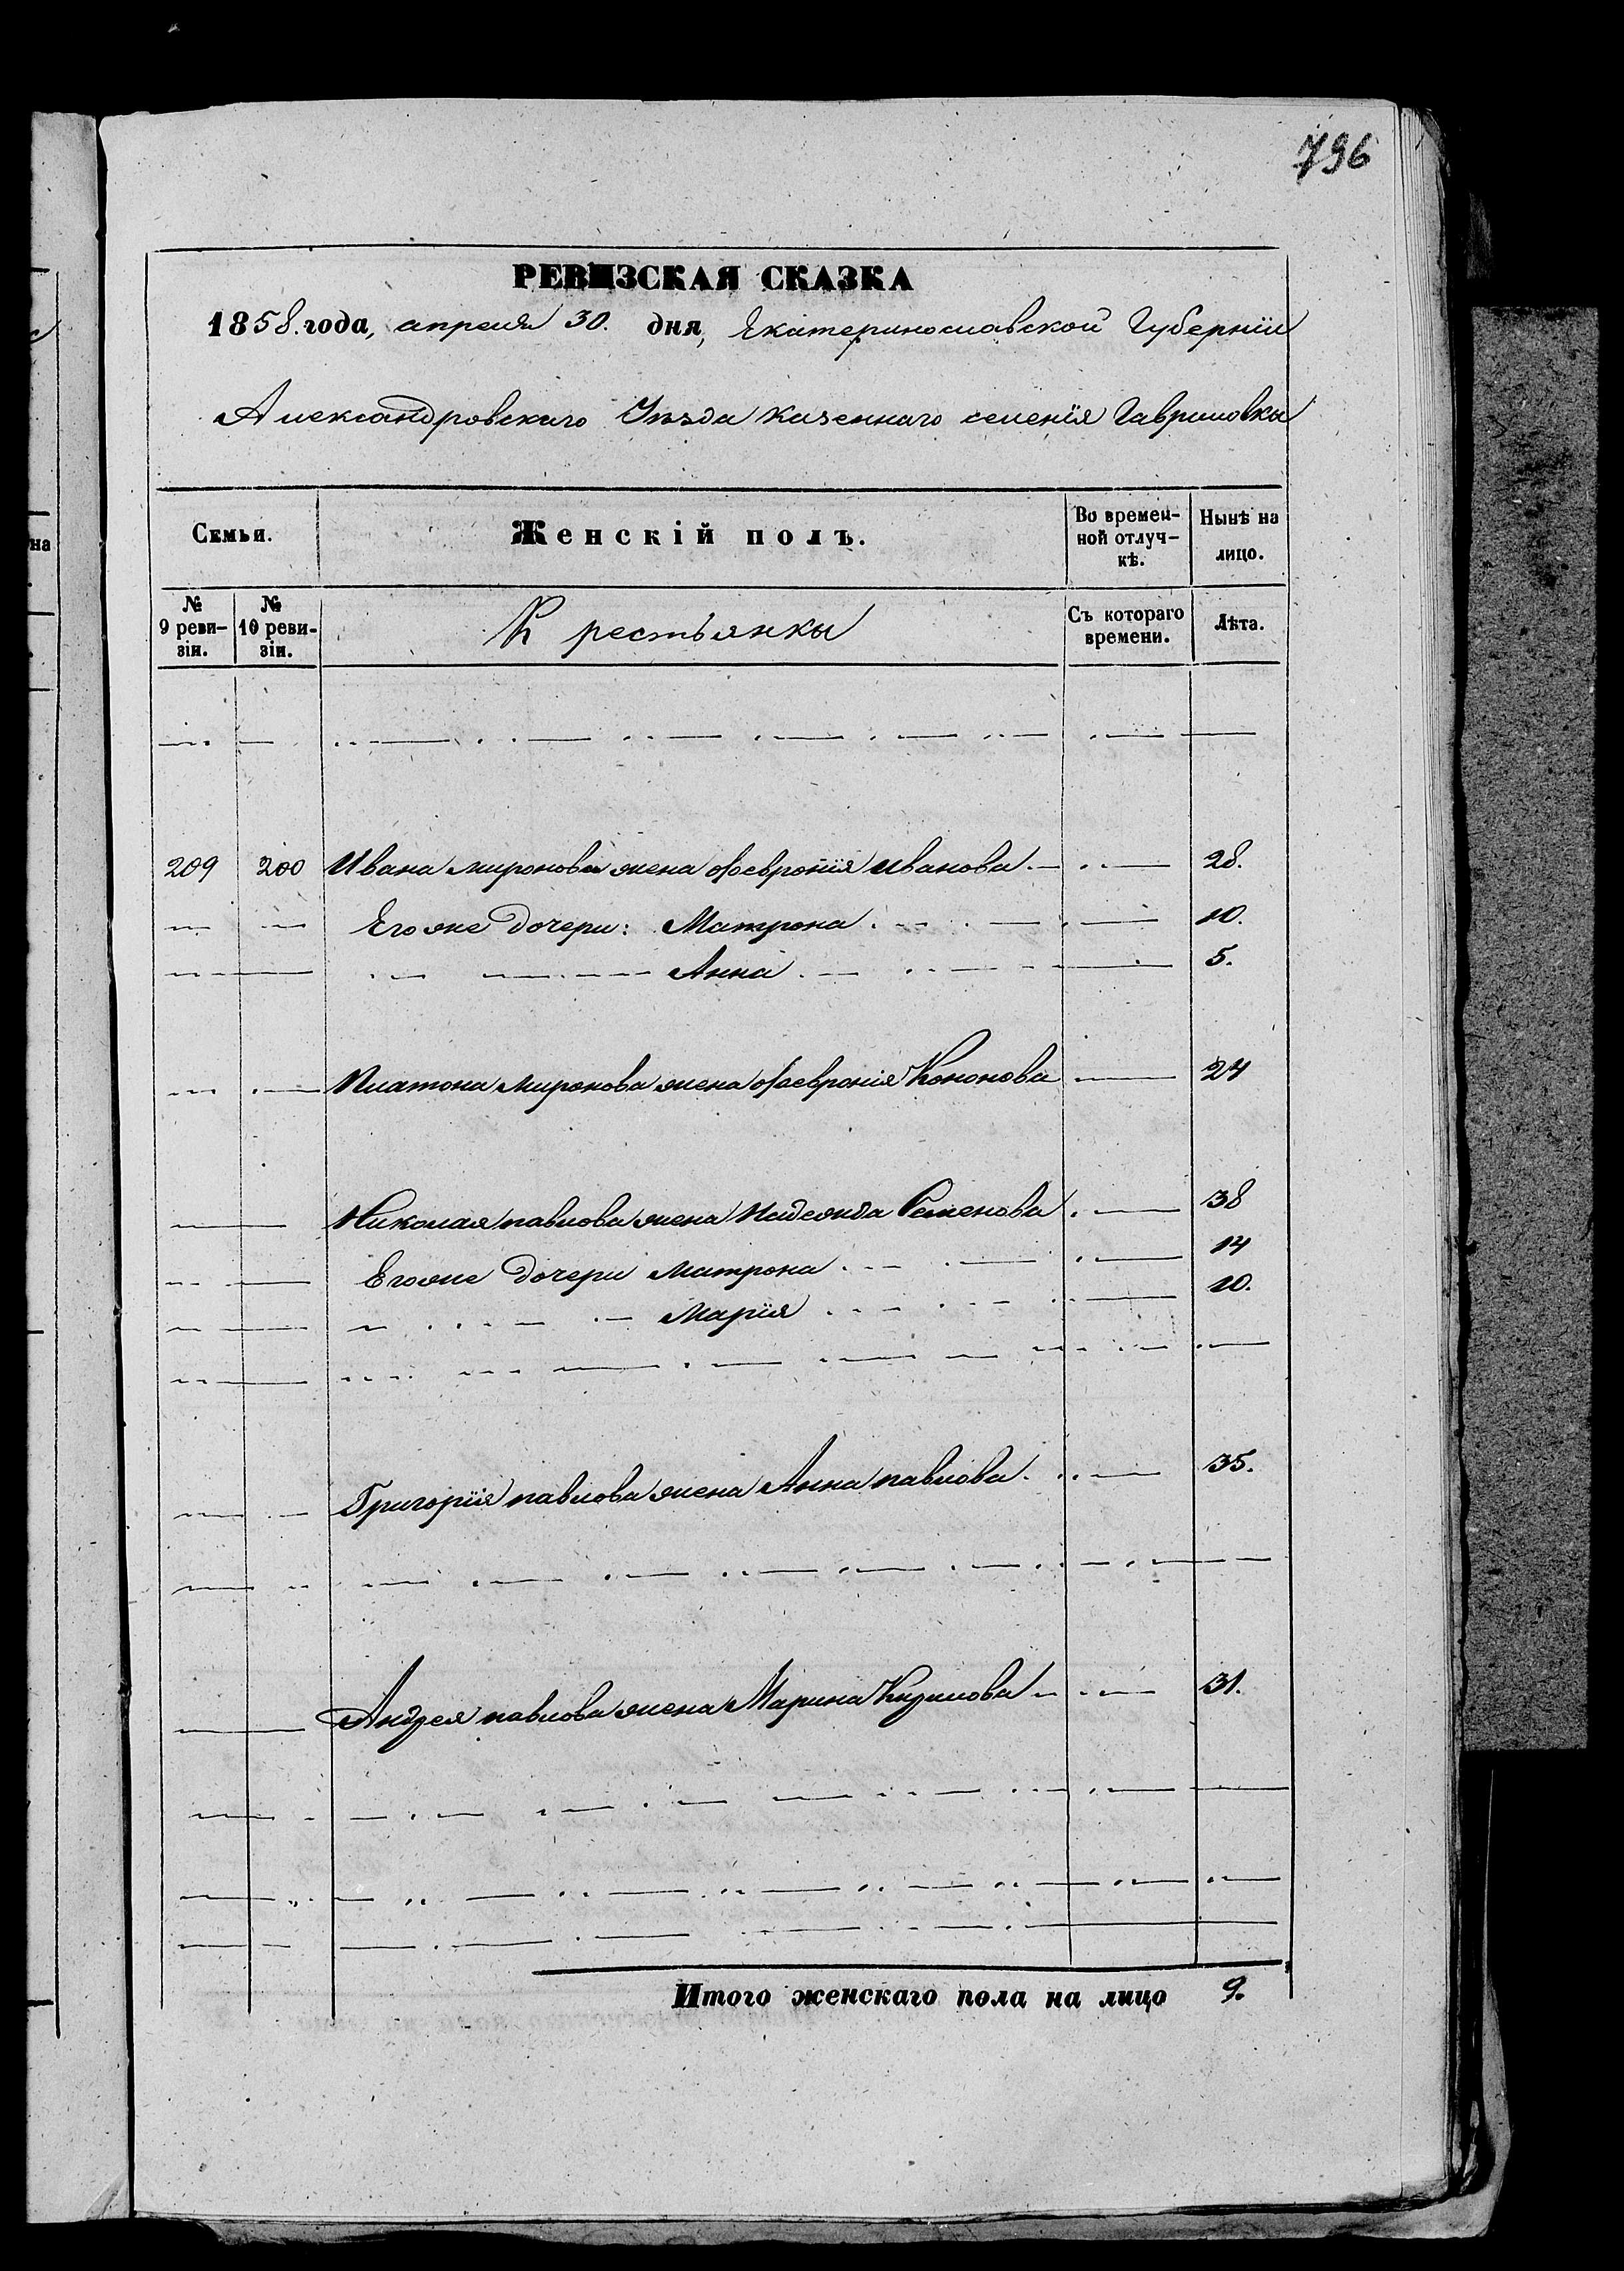 796
РЕВИЗСКАЯ СКАЗКА
1858. года, апреля 30. дня, Екатеринославской Губернїи
Александровскаго Уѣзда казеннаго селенїя Гавриловки
Семьи. Женскій полъ. Во времен- Нынѣ на
ной отлуч- лицо.
кѣ.
№ № Крестьянки Съ котораго Лѣта.
9 реви- 10 реви- времени.
зіи. зіи.
209 200 Ивана миронова жена Февронїя иванова 28.
Его же дочери: Матрона 10.
Анна 5.
Платона миронова жена Февронїя Кононова 24
Николая павлова жена Надежда Семенова 38
Его же дочери Матрона 14
Марїя 10.
Григорїя павлова жена Анна павлова 35.
Андрея павлова жена Марина 31.
Итого женскаго пола на лицо 9.
на